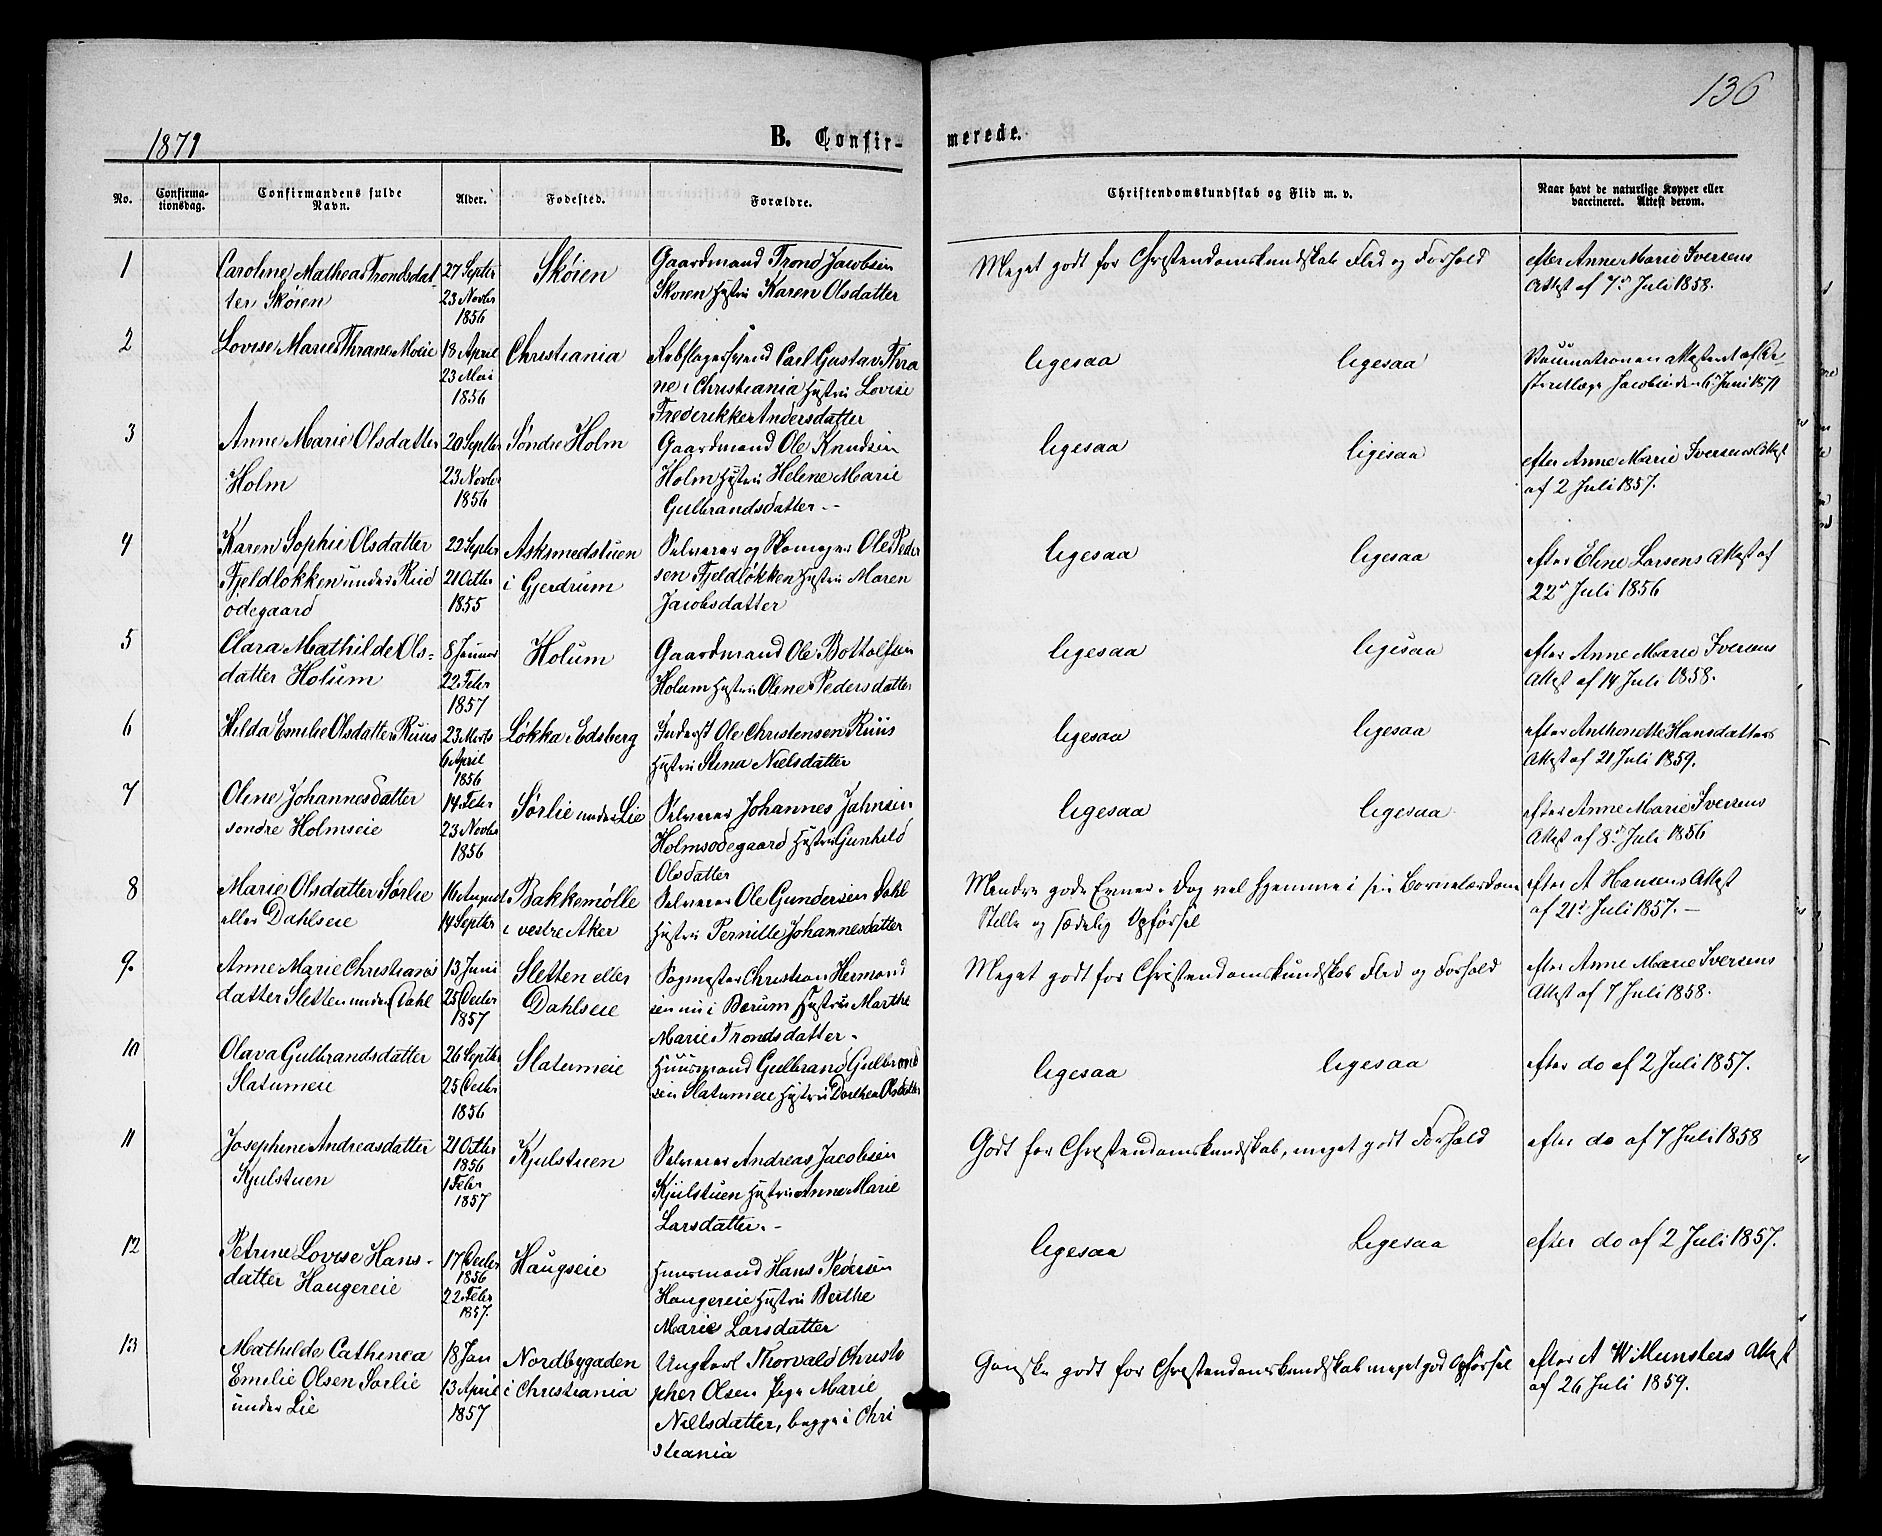 136
1871
B. Confir-
merede.
No.
Confirma-
tionsdag.
Confirmandens fulde
Navn.
Alder.
Fødested.
Forældre.
Christendomskundskab og Flid m. v.
Naar havt de naturlige Kopper eller
vaccineret. Attest derom.
1 Caroline Mathea Trondsdat- 27 Septbr Skøien Gaardmand Trond Jacobsen Meget godt for Christendomskundskab Flid og Forhold efter Anne Marie Iversens
ter Skøien 23 Novbr Skøien Hustru Karen Olsdatter Attest af 7de Juli 1858.
1856
2 Lovise Marie Thrane Moeie 18 April Christiania Rebslagersvend Carl Gustav Thra ligesaa ligesaa
23 Mai ne i Christiania Hustru Lovise Jacobi den 6 Juni 1871
1856 Frederikke Andersdatter
3 Anne Marie Olsdatter 20 Septbr Søndre Holm Gaardmand Ole Knudsen ligesaa ligesaa efter Anne Marie Iversens Attest
Holm 23 Novbr Holm Hustru Helene Marie af 2 Juli 1857.
1856 Gulbrandsdatter.-
4 Karen Sophie Olsdatter 22 Septbr Askmedstuen Selveier og Skomager Ole Peder ligesaa ligesaa efter Eline Larsens Attest af
Fjeldløkken under Ruud 21 Octbr i Gjerdrum sen Fjeldløkken Hustru Maren 22de Juli 1856
ødegaard 1855 Jacobsdatter
5 Clara Mathilde Ols- 8 Januar Holum Gaardmand Ole Bottolfsen ligesaa ligesaa efter Anne Marie Iversens
datter Holum 22 Febr Holum Hustru Oline Pedersdatter Attest af 14 Juli 1858.
1857
6 Hilda Emilie Olsdatter Ruus 23 Marts Løkka i Edsberg Inderst Ole Christensen Ruus ligesaa ligesaa efter Anthonette Hansdatters
6 April Hustru Stina Nielsdatter Attest af 21 Juli 1859.
1856
7 Oline Johannesdatter 14 Febr Sørlie under Lie Selveier Johannes Jahnsen ligesaa ligesaa efter Anne Marie Iversens
søndre Holmseie 23 Novbr Holmsødegaard Hustru Gunhild Attest af 8de Juli 1856
1856 Olsdatter
8 Marie Olsdatter Sørlie 16 August Bakkemølle Selveier Ole Gundersen Dahl Mindre gode Evner. Dog vel hjemme i sin Børnelærdom efter A Hansens Attest
eller Dahlseie 14 Septbr i vestre Aker Hustru Pernille Johannesdatter Stille og sædelig Opførsel af 21de Juli 1857.-
9. Anne Marie Christians 13 Juni Sletten eller Sagmester Christian Hermand Meget godt for Christendomskundskab Flid og Forhold efter Anne Marie Iversens
datter Sletten under Dahl 25 Decbr Dahlseie sen nu i Bærum Hustru Marthe Attest af 7 Juli 1858.
1857 Marie Trondsdatter.
10 Olava Gulbrandsdatter 26 Septbr Slatumeie Huusmand Gulbrand Gulbrand ligesaa ligesaa efter do af 2 Juli 1857.
Slatumeie 25 Decbr sen Slatumeie Hustru Dorthea Olsdatter
1856
11 Josephine Andreasdatter 21 Octbr Kjulstuen Selveier Andreas Jacobsen Godt for Christendomskundskab, meget godt Forhold efter do af 7 Juli 1858
Kjulstuen 1856 Kjulstuen Hustru Anne Marie
1 Febr Larsdatter.-
1857
12 Petrine Lovise Hans- 17 Decbr Haugseie Huusmand Hans Pedersen ligesaa Ligesaa efter do af 2 Juli 1857.
datter Haugereie 1856 Haugereie Hustru Berthe
22 Febr Marie Larsdatter
1857.
13 Mathilde Cathinca 18 Jan Nordbygaden Ungkarl Thorvald Christo Ganske godt for Christendomskundskab meget god Opførsel efter A W Munsters Attest
Emilie Olsen Sørlie 13 April i Christiania pher Olsen Pige Marie af 26 Juli 1859.
under Lie 1857 Nielsdatter, begge i Chri
stiania